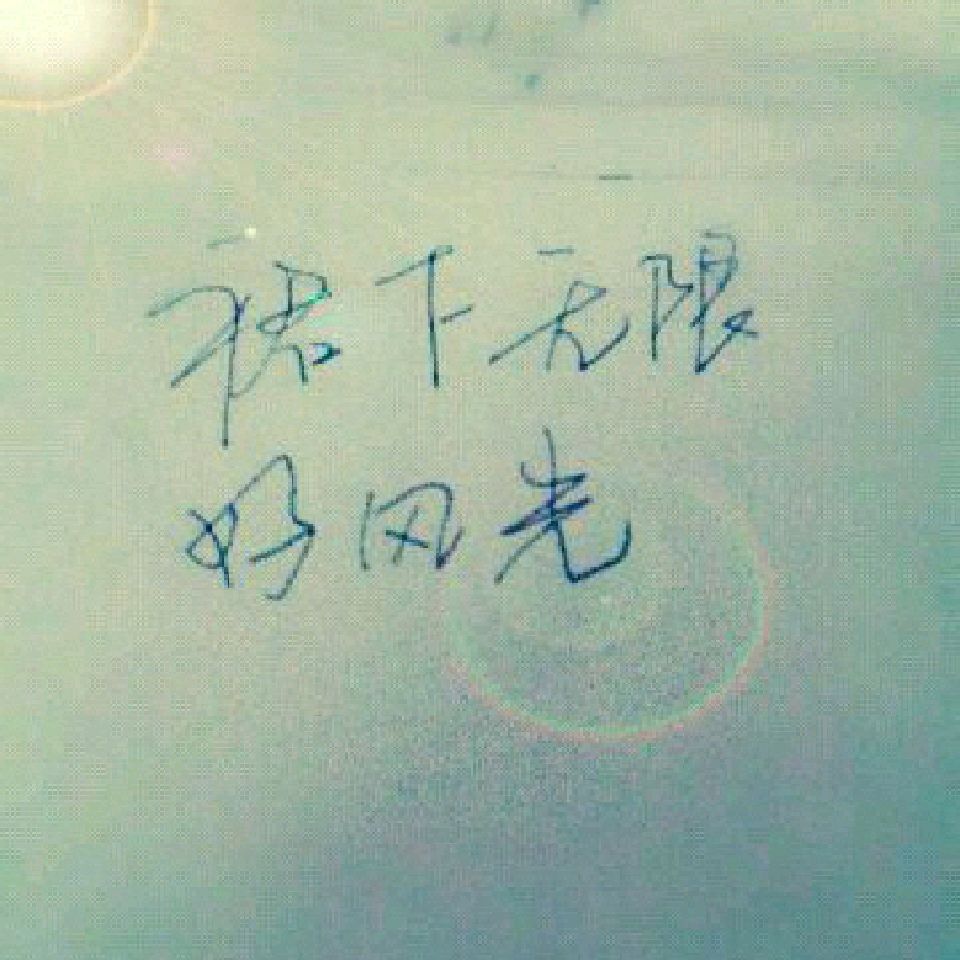 裙下无限
好风光